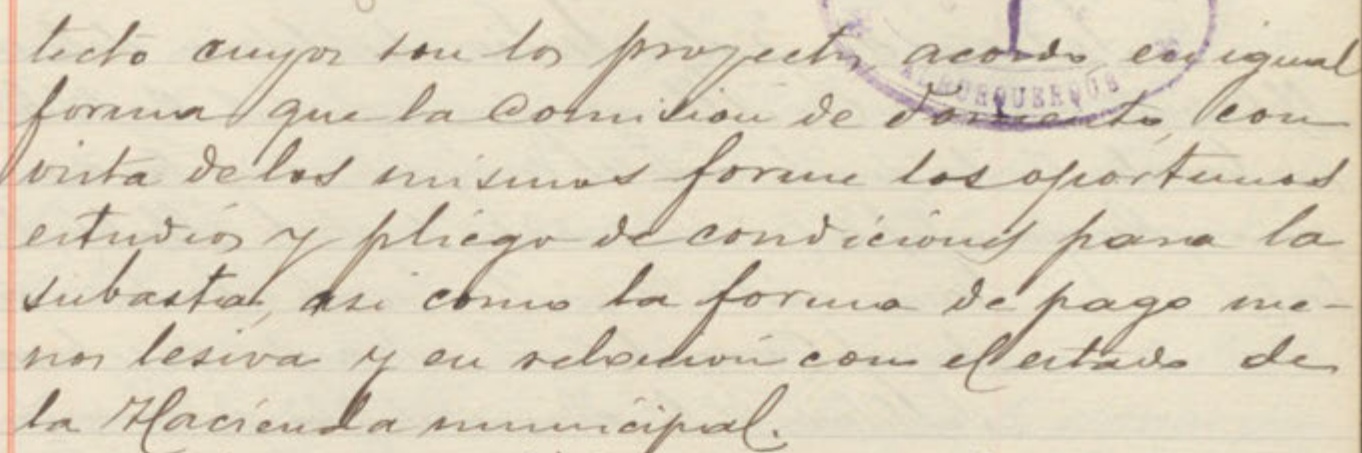 tecto cuyos son los proyectos, acordo en igual
ALBURQUERQUE
forma que la Comision de Fomento, con
vista de los mismos forme los oportunos
estudios y pliego de condiciones para la
subasta, asi como la forma de pago me-
nos lesiva y en relacion con el estado de
la Hacienda municipal.